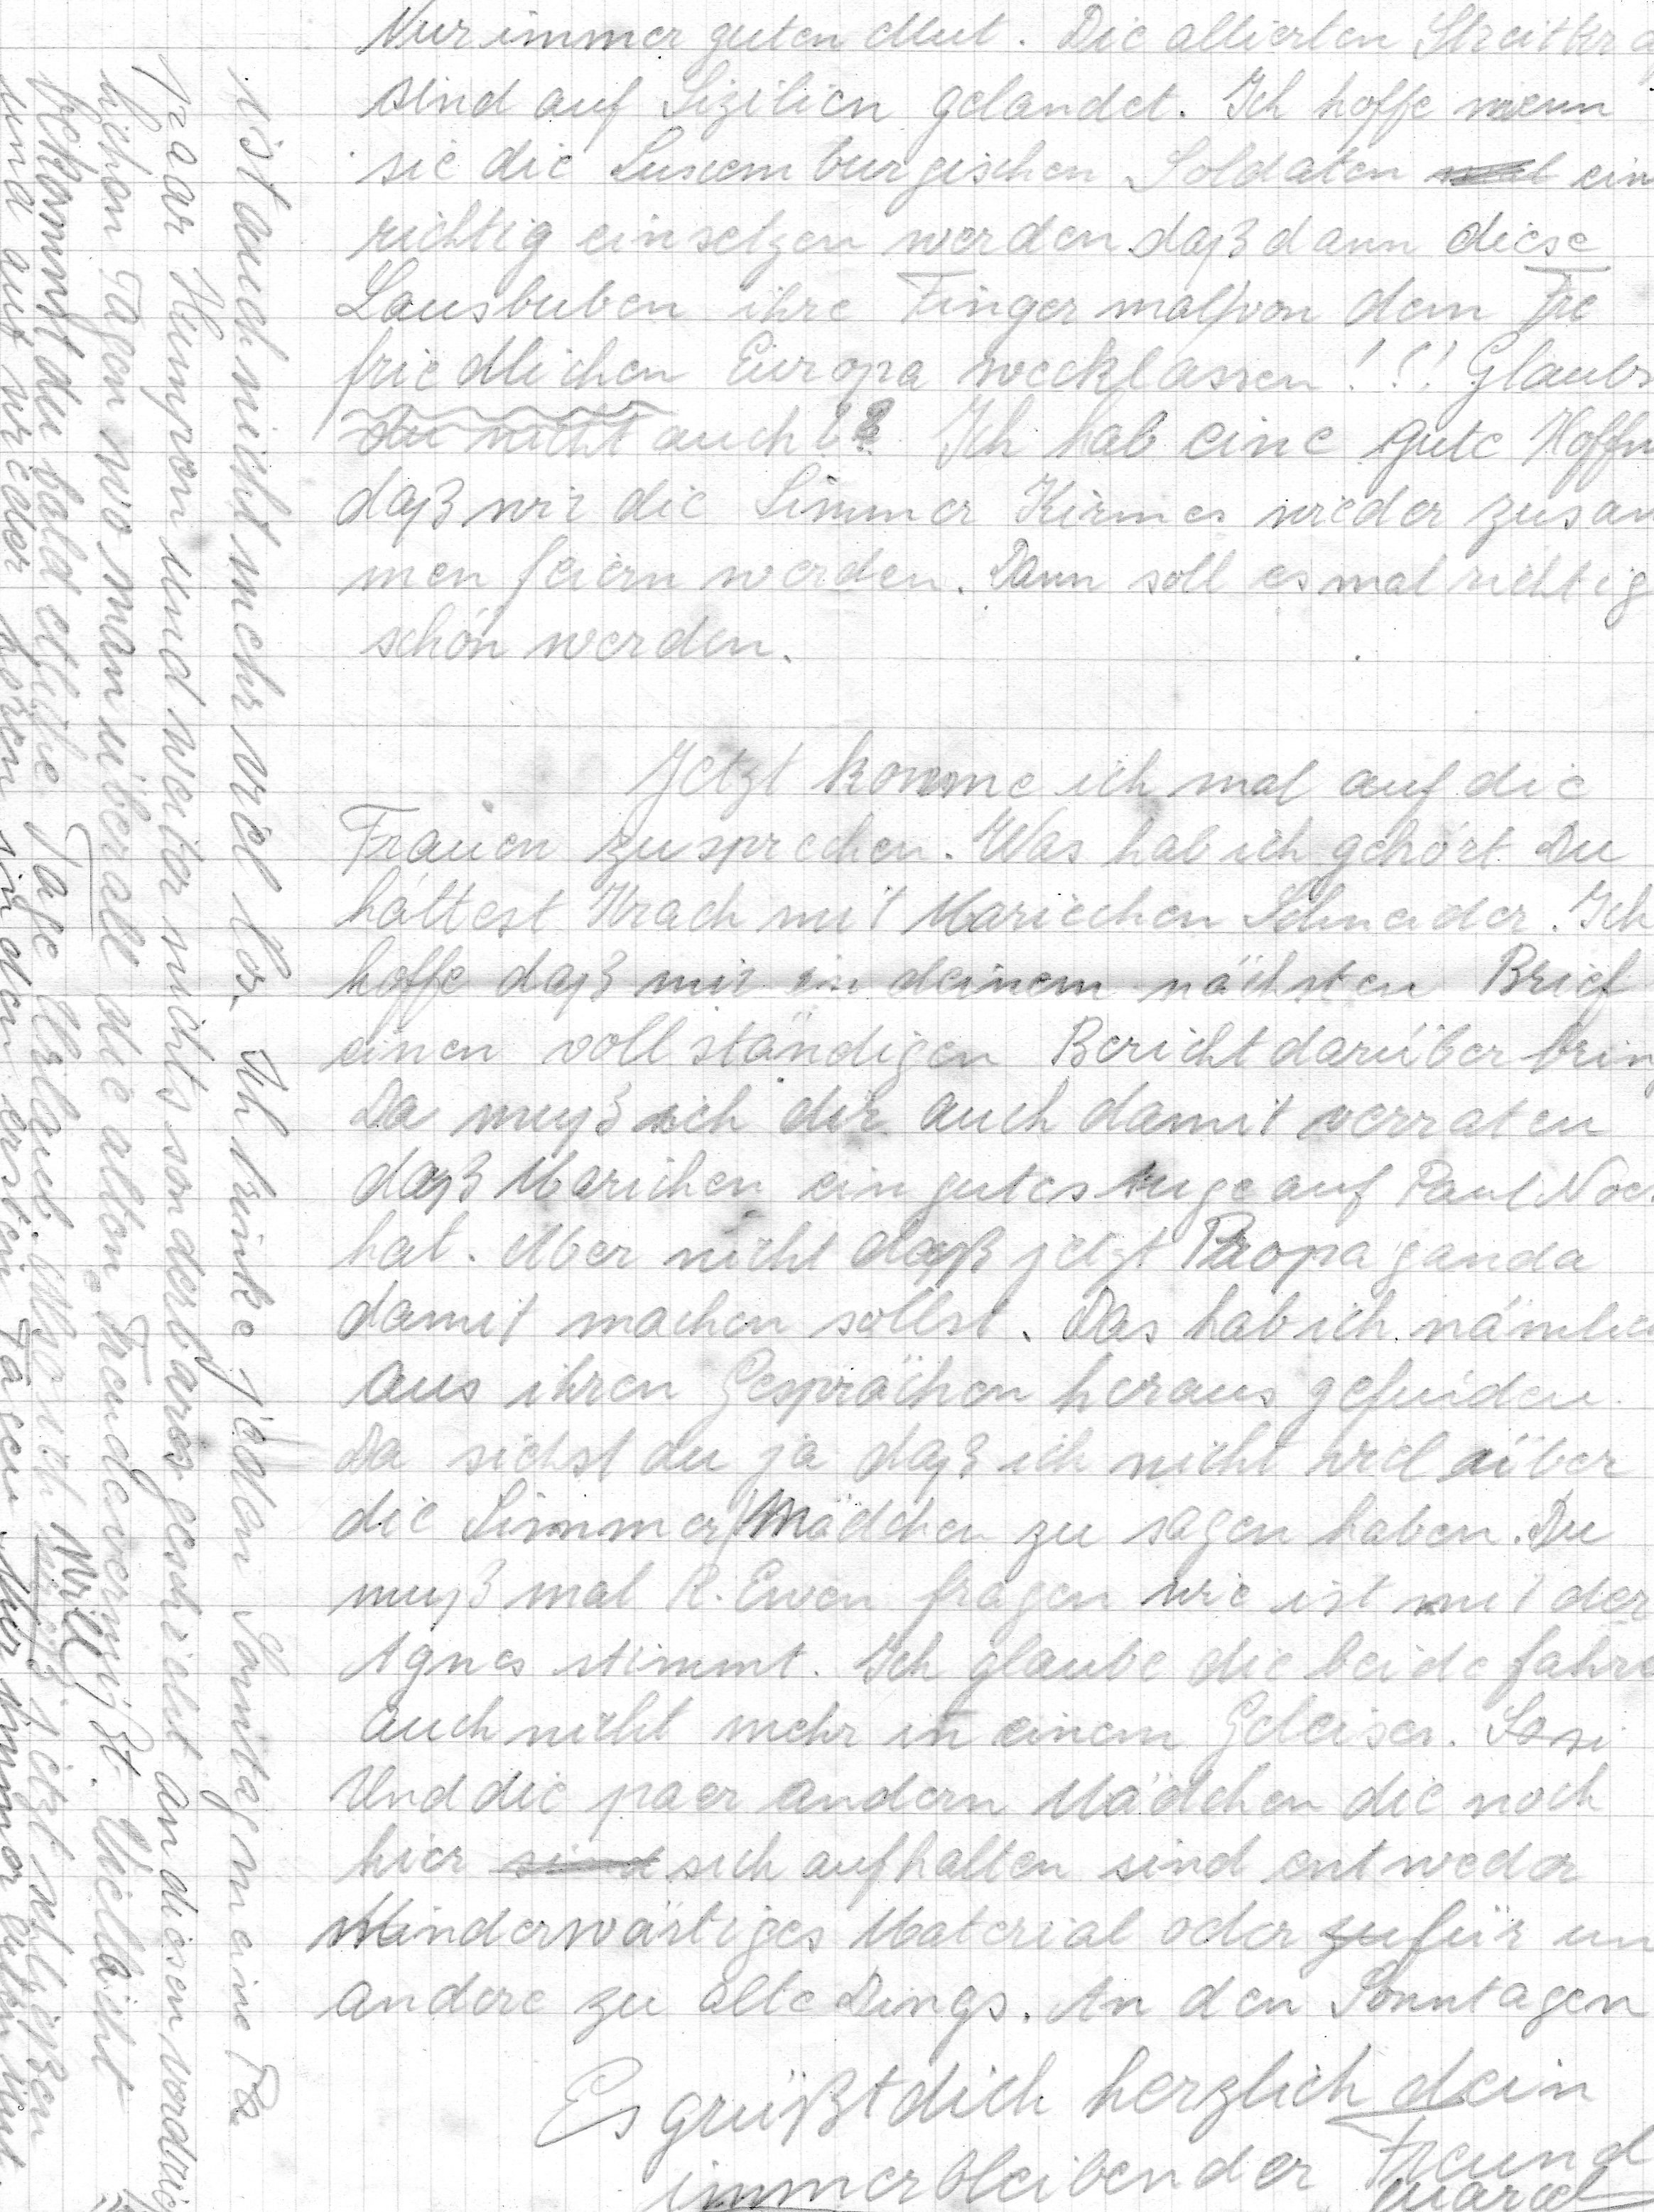 Nur immer guten Mut. Die allierten Streitkr
sind auf Sizilien gelandet. Ich hoffe wenn
sie die Luxemburgischen Soldaten ein
richtig einsetzen werden daß dann diese
Lausbuben ihre Finger mal von dem Fre
friedlichen Europa wecklassen! ! ! Glaubs
du nicht auch? Ich hab eine gute Hoffnu
daß wir die Simmer Kirmes wieder zusam
men feiern werden. Dann soll es mal richtig
schön werden.
Jetzt komme ich mal auf die
Frauen zu sprechen. Was hab ich gehört Du
hättest Krach mit Mariechen Schneider. Ich
hoffe daß mir in deinem nächsten Brief
einen vollständigen Bericht darüber bring
Da muß ich dir auch damit verraten
daß Marichen ein gutes Auge auf Paul Noe
hat. Aber nicht daß jetzt Propaganda
damit machen sollst. Das hab ich nämlich
aus ihren Gesprächen heraus gefunden.
Da siehst du ja daß ich nicht viel über
die Simmer Mädchen zu sagen haben. Du
muß mal R. Ewen fragen wie ist mit der
Agnes stimmt. Ich glaube die beide fahre
auch nicht mehr in einem Geleiser.
Und die paar andern Mädchen die noch
hier sind sich aufhalten sind entweder
Minderwärtiges Material oder zu für un
andere zu alte Dings. An den Sonntagen
ist auch nicht mehr viel los. Ich trinke jeden Sonntag meine
paar Humpen und weiter nichts sonderbares geschieht an diesen
schon Tagen wo man überall die alten Freunde vermißt. Vielleicht
bekommst du bald etliche Tage Urlaub. Aber ich muß jetzt schließen
und auf wieder hören in den ersten Tagen. Nur immer guten Mut.
Willy
Es grüßt dich herzlich dein
immerbleibender Freund
Marcel